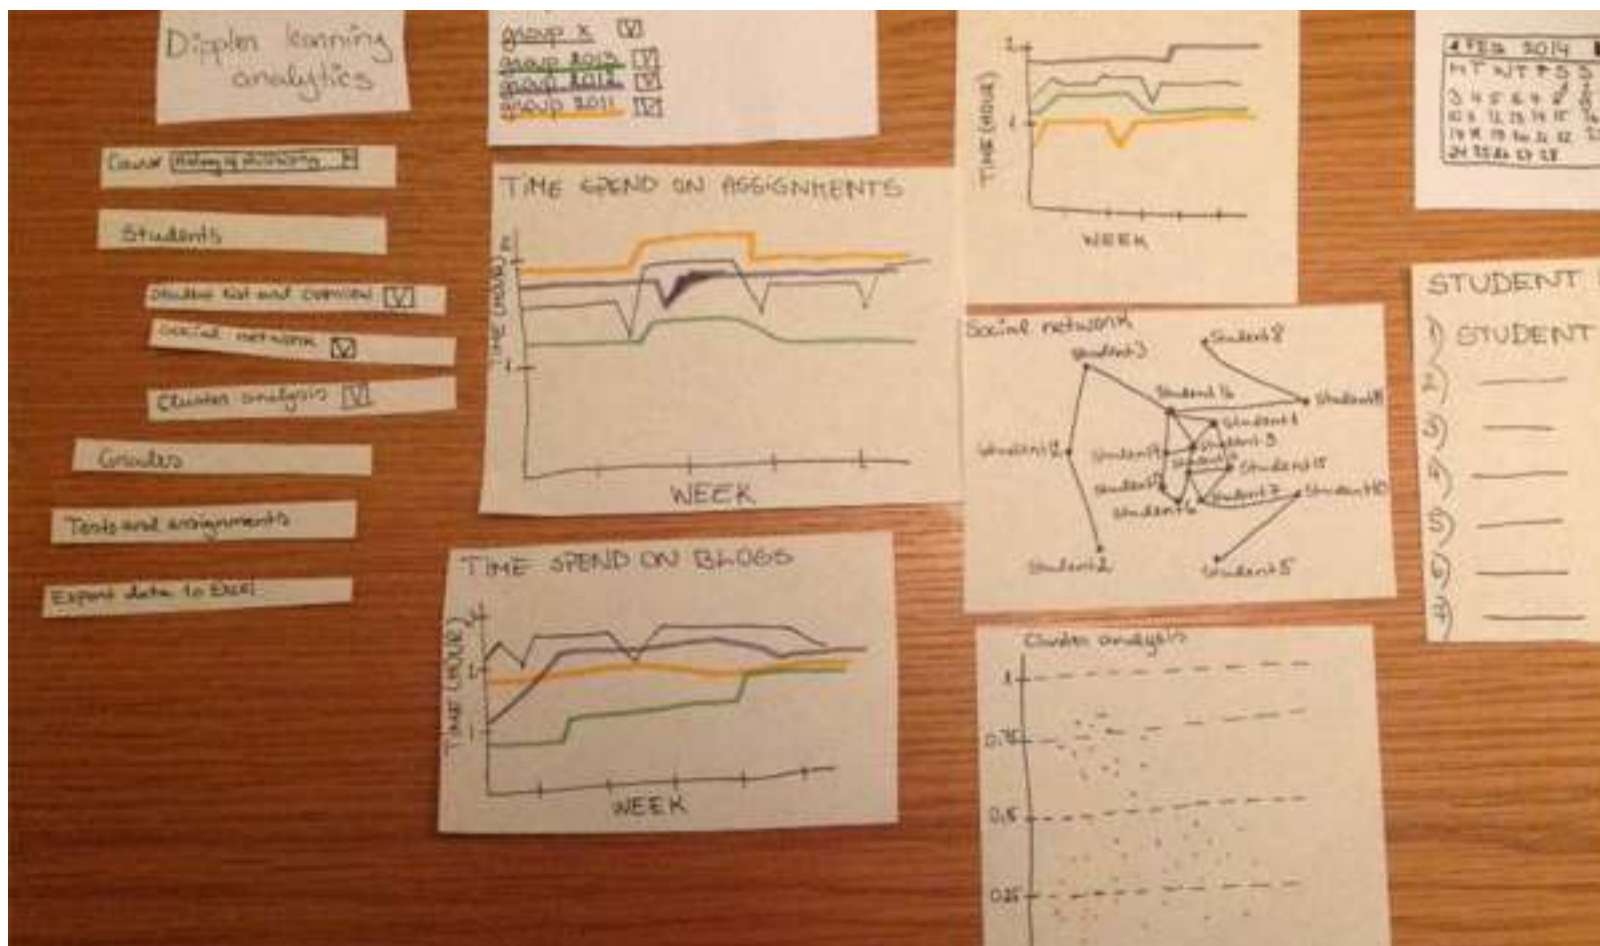 Dippler learning
analytics
Course
Students
Student list and overview V
Social network V
Cluster analysis V
Grades
Tests and assignments
Export data to Excel
group x V
group 2013 V
group 2012 V
group 2011 V
TIME SPEND ON ASSIGNMENTS
TIME (HOUR)
1
WEEK
TIME SPEND ON BLOGS
TIME (HOUR)
WEEK
2
1
TIME (HOUR)
WEEK
Social network
Student 8
Student 3
Student 16
Student 1
Student 12
Student 9
Student 15
Student 7
Student 10
Student 6
Student 2
Student 5
Cluster analysis
1
0.75
0.5
0.25
FEB 2014
M T W T F S S
3 4 5 6 7
24 25 26 27 28
STUDENT
1) STUDENT
2)
3)
4)
5)
6)
7)